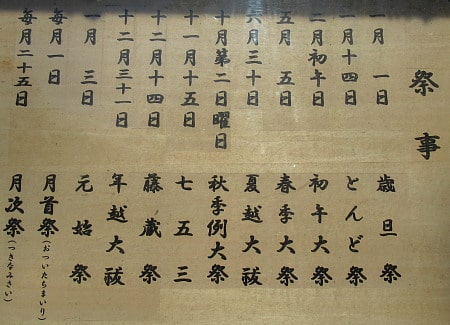 祭事
一月一日 歳旦祭
一月十四日 とんど祭
二月初午日 初午大祭
五月五日 春季大祭
六月三十日 夏越大祓
十月第二日曜日 秋季例大祭
十一月十五日 七五三
十二月十四日 藤蔵祭
十二月三十一日 年越大祓
一月三日 元始祭
毎月一日 月首祭(おついたちまいり)
毎月二十五日 月次祭(つきなみさい)